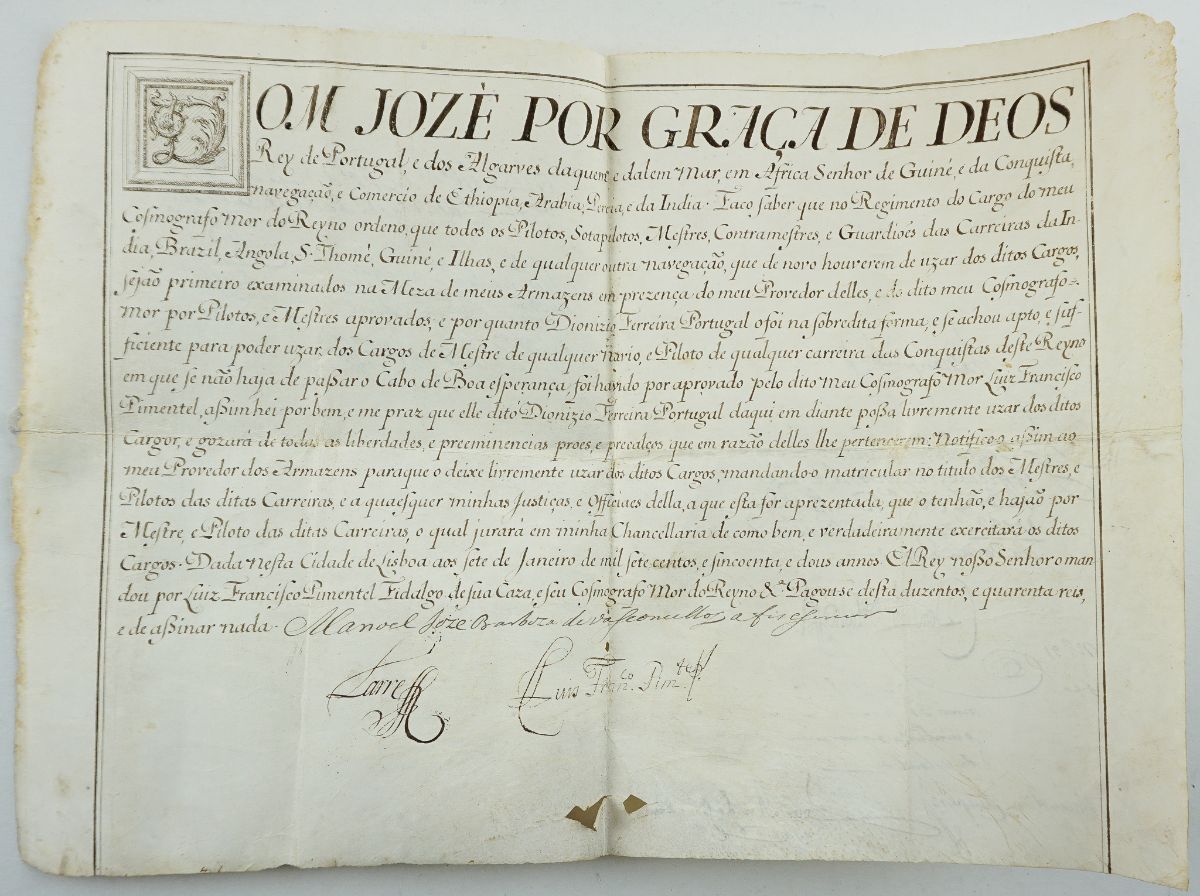 DOM JOZÈ POR GRAÇA DE DEOS
Rey de Portugal, e dos Algarves daquem, e dalem Mar, em Africa Senhor de Guiné, e da Conquista,
navegação, e Comercio de Ethiopia, Arabia, Percia, e da India. Faco saber que no Regimento do Cargo do meu
Cosmografo Mor do Reyno ordeno, que todos os Pilotos, Sotapilotos, Mestres, Contramestres, e Guardioẽs das Carreiras da In-
dia, Brazil, Angola, S. Thomé, Guiné, e Ilhas, e de qualquer outra navegação, que de novo houverem de uzar dos ditos Cargos,
sejão primeiro examinados na Meza de meus Armazens em prezença do meu Provedor delles, e do dito meu Cosmografo=
Mor por Pilotos, e Mestres aprovados, e por quanto Dionizio Ferreira Portugal o foi na sobredita forma, e se achou apto, e suf-
ficiente para poder uzar dos Cargos de Mestre de qualquer Navio, e Piloto de qualquer carreira das Conquistas deste Reyno
em que se não haja de passar o Cabo de Boa esperança, foi havido por aprovado pelo dito Meu Cosmografo Mor Luiz Francisco
Pimentel, assim hei por bem, e me praz que elle dito Dionizio Ferreira Portugal daqui em diante possa livremente uzar dos ditos
Cargor, e gozará de todas as liberdades, e preeminencias proes, e precalços que em razão delles lhe pertencerem; Notifico-o assim ao
meu Provedor dos Armazens paraque o deixe livremente uzar dos ditos Cargos, mandando-o matricular no titulo dos Mestres, e
Pilotos das ditas Carreiras, e a quaesquer minhas Justiças, e Officiaes della, a que esta fór aprezentada, que o tenhão, e hajão por
Mestre, e Piloto das ditas Carreiras, o qual jurará em minha Chancellaria de como bem, e verdadeiramente exercitará os ditos
Cargos. Dada nesta Cidade de Lisboa aos sete de Janeiro de mil sete centos, e sincoenta, e dous annos. El Rey nosso Senhor o man
dou por Luiz Francisco Pimentel Fidalgo de sua Caza, e seu Cosmografo Mor do Reyno &ª Pagouse desta duzentos, e quarenta reis,
e de assinar nada. Manoel Joze Barboza de Vasconcellos a fiz escrever
Luis Franᶜᵒ. Pimᵗᵉˡ